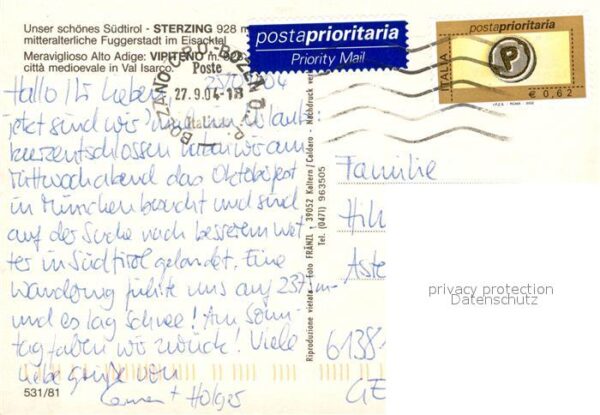 Unser schönes Südtirol - STERZING 928 m
mitteralterliche Fuggerstadt im Eisacktal
Meraviglioso Alto Adige: VIPITENO m.
città medioevale in Val Isarco.
postaprioritaria
Priority Mail
postaprioritaria
ITALIA
P
I.P.Z.S. - ROMA - 2002
€ 0,62
Poste
27.9.04-18
Italiane
Hallo Ihr Lieben,
jetzt sind wir im Urlaub!
kurzentschlossen waren wir am
Mittwochabend das Oktoberfest
in München besucht und sind
auf der Suche nach besserem Wet
ter in Südtirol gelandet. Eine
Wanderung führte uns auf
und es lag Schnee! Am Sonn-
tag fahren wir zurück! Viele
liebe Grüße von
+ Holger
531/81
Riproduzione vietata - Foto FRÄNZL - 39052 Kaltern/Caldaro - Nachdruck ver
Tel. (0471) 963505
Familie
Hil
Aste
6138
GE
privacy protection
Datenschutz